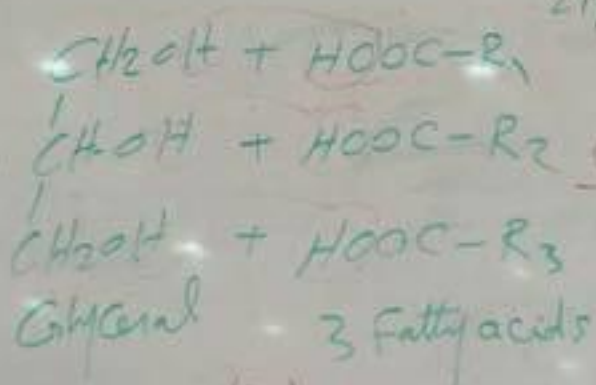 CH2OH + HOOC-R1
|
CHOH + HOOC-R2
|
CH2OH + HOOC-R3
Glycerol 3 Fatty acids